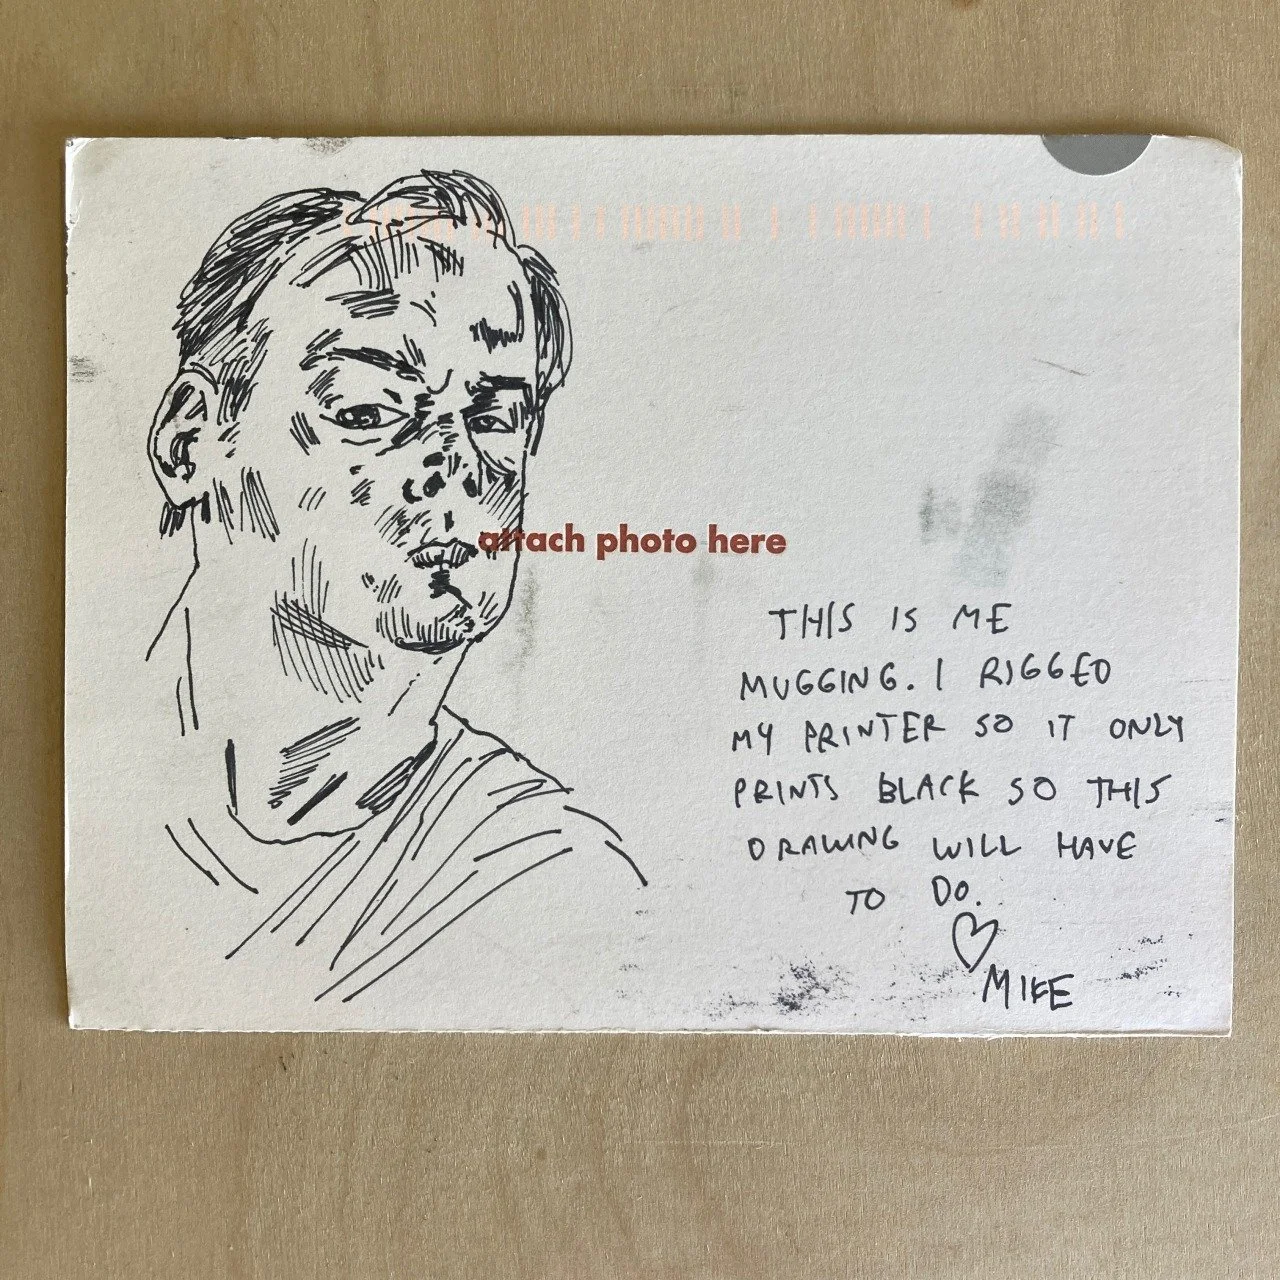 attach photo here
THIS IS ME
MUGGING. I RIGGED
MY PRINTER SO IT ONLY
PRINTS BLACK SO THIS
DRAWING WILL HAVE
TO DO.
♡
MIKE